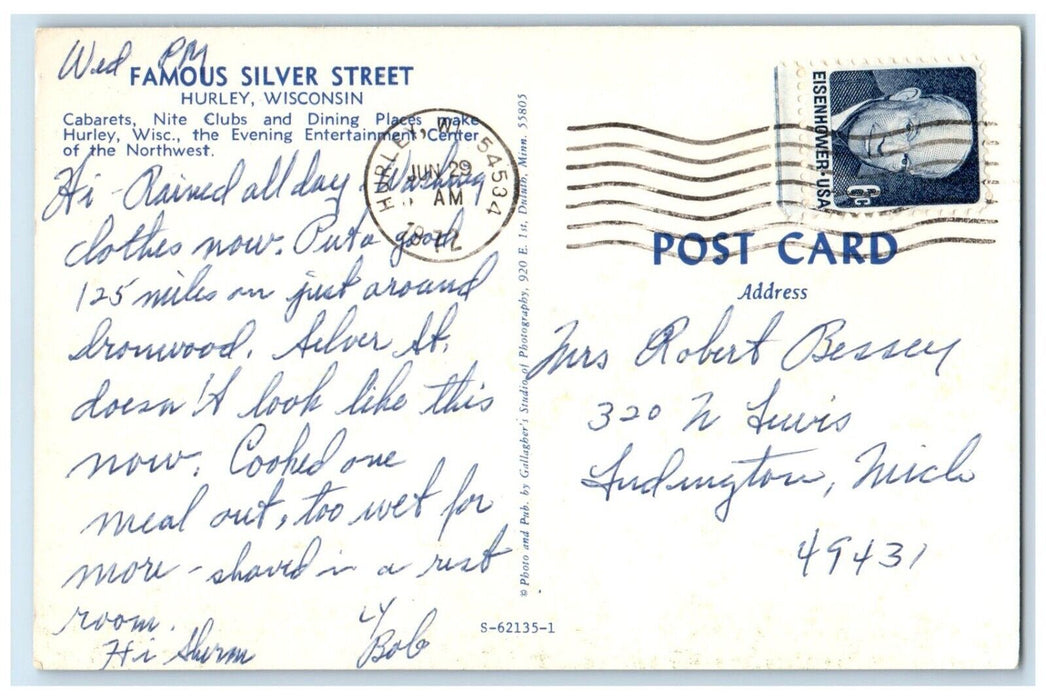 Wed PM
FAMOUS SILVER STREET
HURLEY, WISCONSIN
Cabarets, Nite Clubs and Dining Places make
Hurley, Wisc., the Evening Entertainment Center
of the Northwest.
Hi - Rained all day. Washing
clothes now. Put a good
125 miles on just around
Ironwood. Silver St.
doesn't look like this
now. Cooked one
meal out, too wet for
more - shaved in a rest
room.
Hi Sherm
Bob
HURLEY, WI 54534
JUN 29
AM
1972
© Photo and Pub. by Gallagher's Studio of Photography, 920 E. 1st, Duluth, Minn. 55805
S-62135-1
EISENHOWER·USA
6c
POST CARD
Address
Mrs Robert Bessey
320 N Lewis
Ludington, Mich
49431